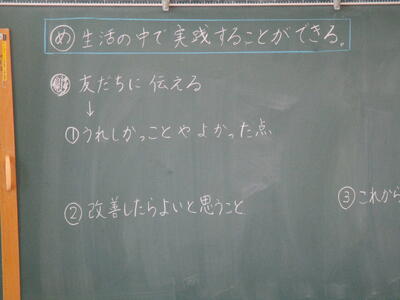 め 生活の中で実践することができる。
友だちに伝える
↓
① うれしかっことやよかった点
② 改善したらよいと思うこと
③ これから